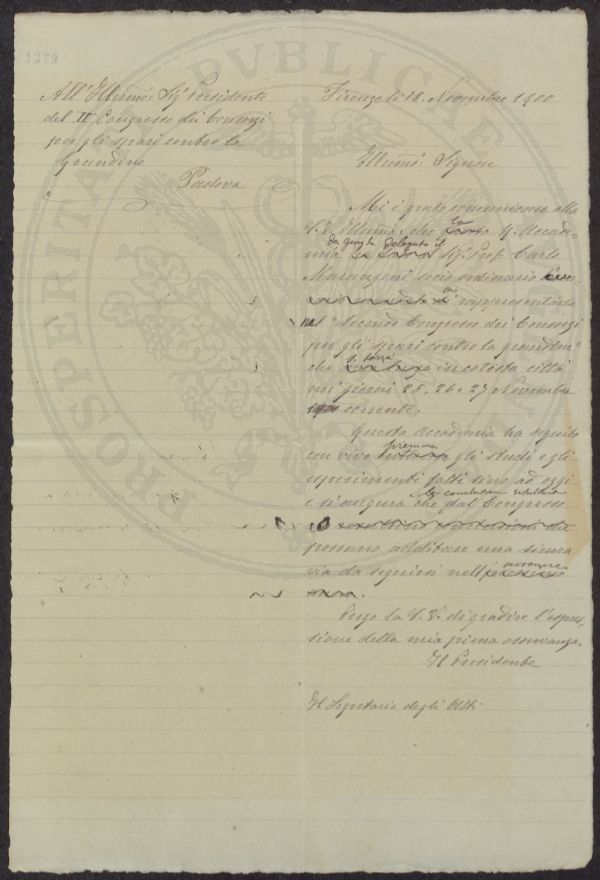 1379
All' Illumo: Sig. Presidente
del II Congresso dei Consorzi
per gli spari contro la
Grandine
Padova
Firenze li 18. Novembre 1900
Illumo: Signore
Mi è grato comunicare alla
S.V. Illuma: che la R. Accade-
mia da questa delegato il Sig. Prof. Carlo
Marangoni socio ordinario
a rappresentarla
nel "Secondo Congresso dei Consorzi
per gli spari contro la grandine"
che si terrà in cotesta città
nei giorni 25, 26 e 27 Novembre
corrente.
Questa Accademia ha seguito
con vivo premura gli studi e gli
esperimenti fatti sino ad oggi
e si augura che dal Congresso
le conclusioni
possano additare una sicura
via da seguirsi nell'avvenire
Prego la S.V. di gradire l'espres-
sione della mia piena osservanza.
Il Presidente
Il Segretario degli Atti
PROSPERITATI PVBLICAE